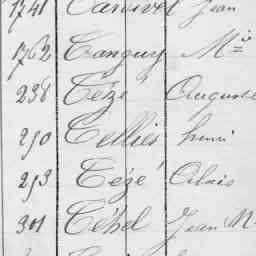 1741 Jean
1762 Tanguy Mie
238 Tézé Auguste
290 Tellies henri
293 Tézé Alais
301 Téhel Jean M